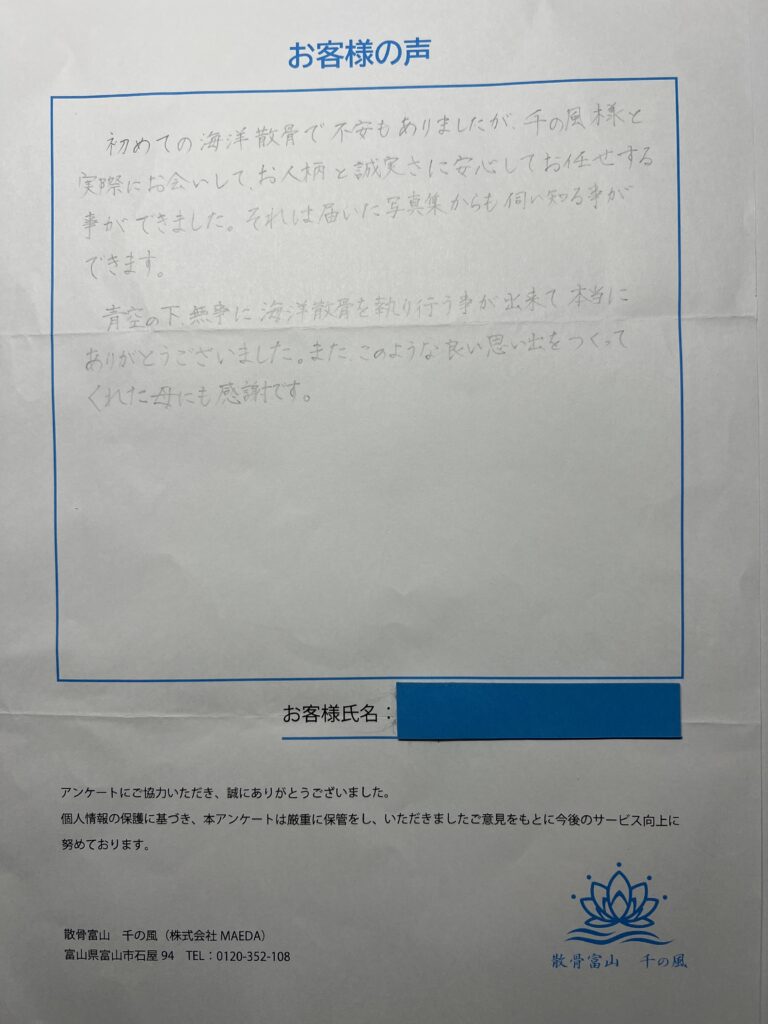 お客様の声
初めての海洋散骨で不安もありましたが、千の風様と
実際にお会いして、お人柄と誠実さに安心してお任せする
事ができました。それは届いた写真集からも伺い知る事が
できます。
青空の下、無事に海洋散骨を執り行う事が出来て本当に
ありがとうございました。また、このような良い思い出をつくって
くれた母にも感謝です。
お客様氏名：
アンケートにご協力いただき、誠にありがとうございました。
個人情報の保護に基づき、本アンケートは厳重に保管をし、いただきましたご意見をもとに今後のサービス向上に
努めております。
散骨富山　千の風（株式会社 MAEDA）
富山県富山市石屋 94　TEL：0120-352-108
散骨富山　千の風